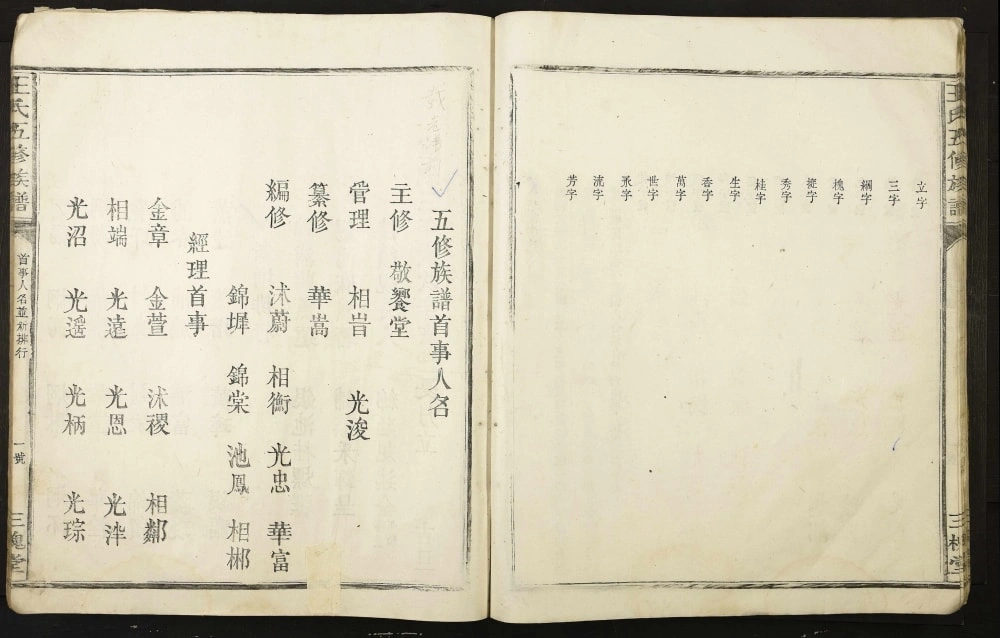 王氏五修族譜
三槐堂
立字
三字
綱字
槐字
挺字
秀字
桂字
生字
香字
萬字
世字
永字
流字
芳字
五修族譜首事人名
主修 敬饗堂
管理 相旹 光浚
纂修 華嵩
編修 沐蔚 相衡 光忠 華富
錦墀 錦棠 池鳳 相郴
經理首事
金章 金萱 沐稷 相鄰
相端 光遠 光恩 光泮
光沼 光暹 光柄 光琮
王氏五修族譜
首事人名並新排行
一號
三槐堂